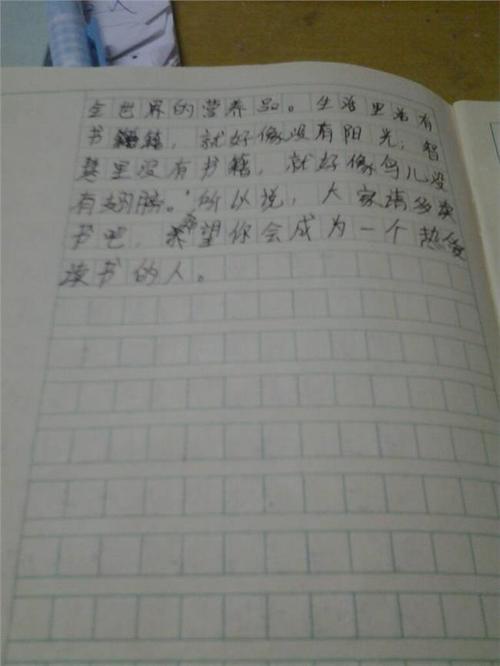 全世界的营养品。生活里没有
书籍，就好像没有阳光；智
慧里没有书籍，就好像鸟儿没
有翅膀。”所以说，大家请多读
书吧，希望你会成为一个热爱
读书的人。